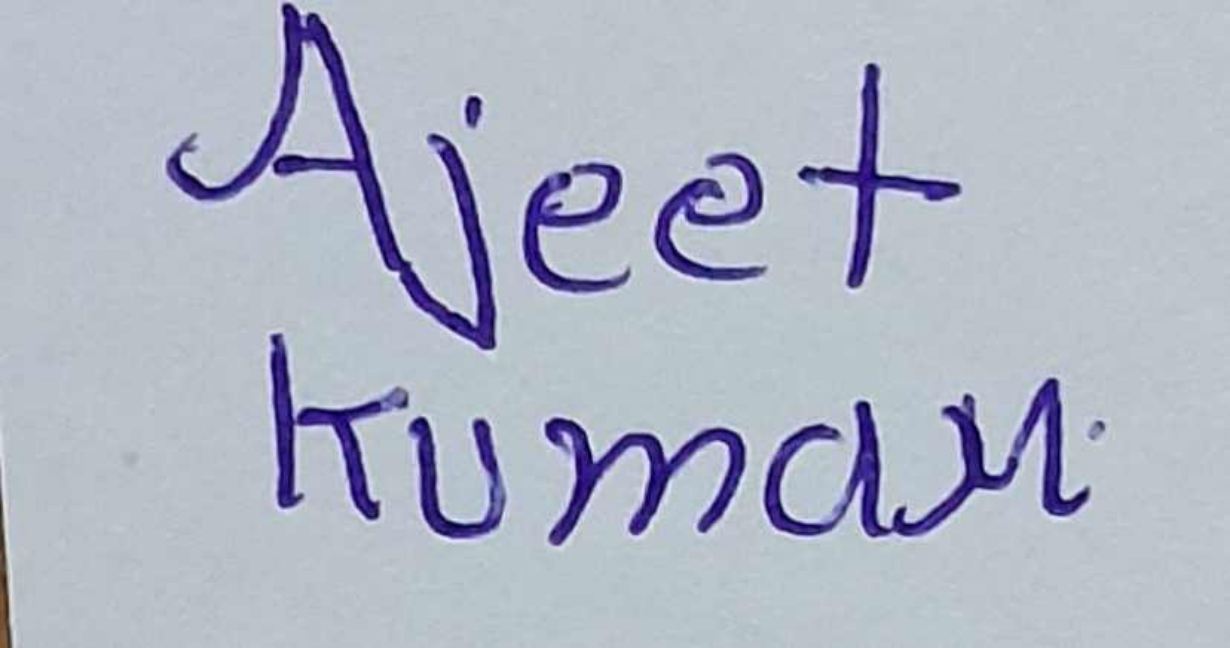 Ajeet
Kumar